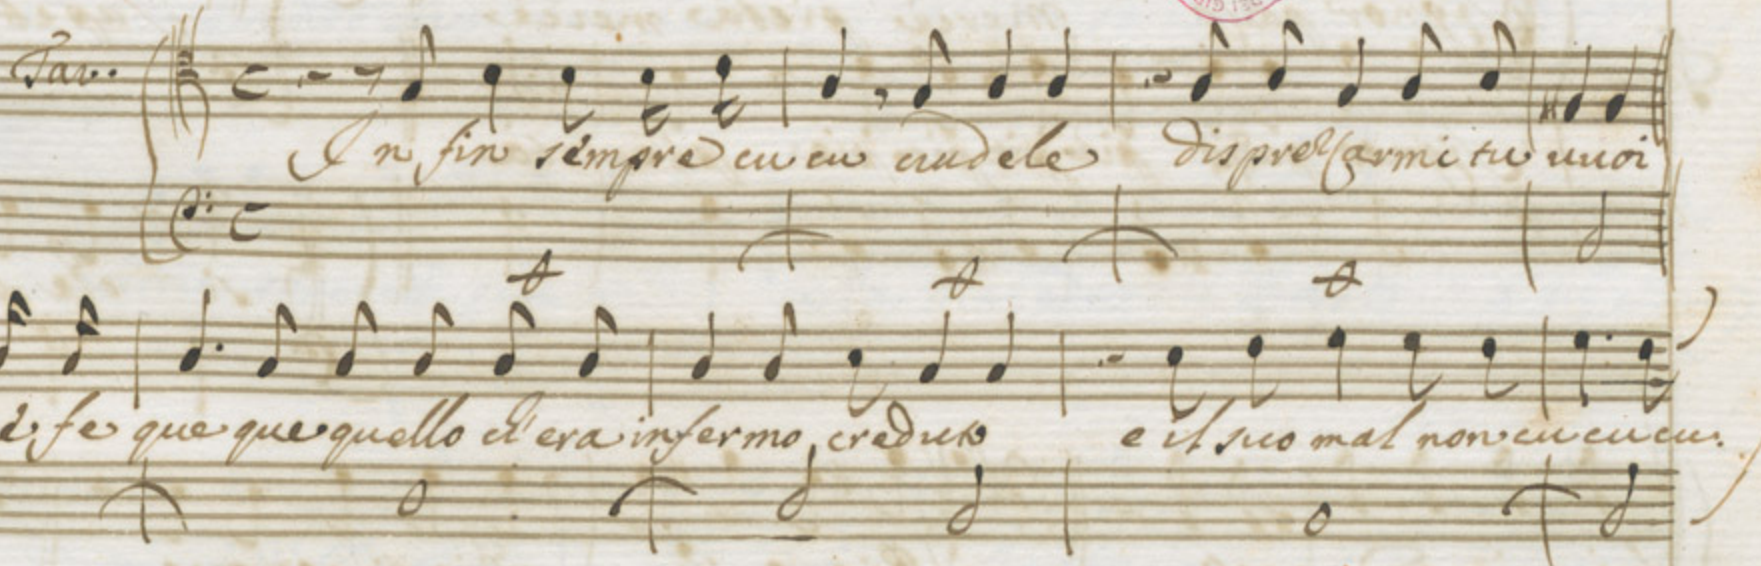 Tar.
In fin sempre cu cu crudele disprezzarmi tu vuoi
e fe que que quello ch'era infermo creduto e il suo mal non cu cu cu.